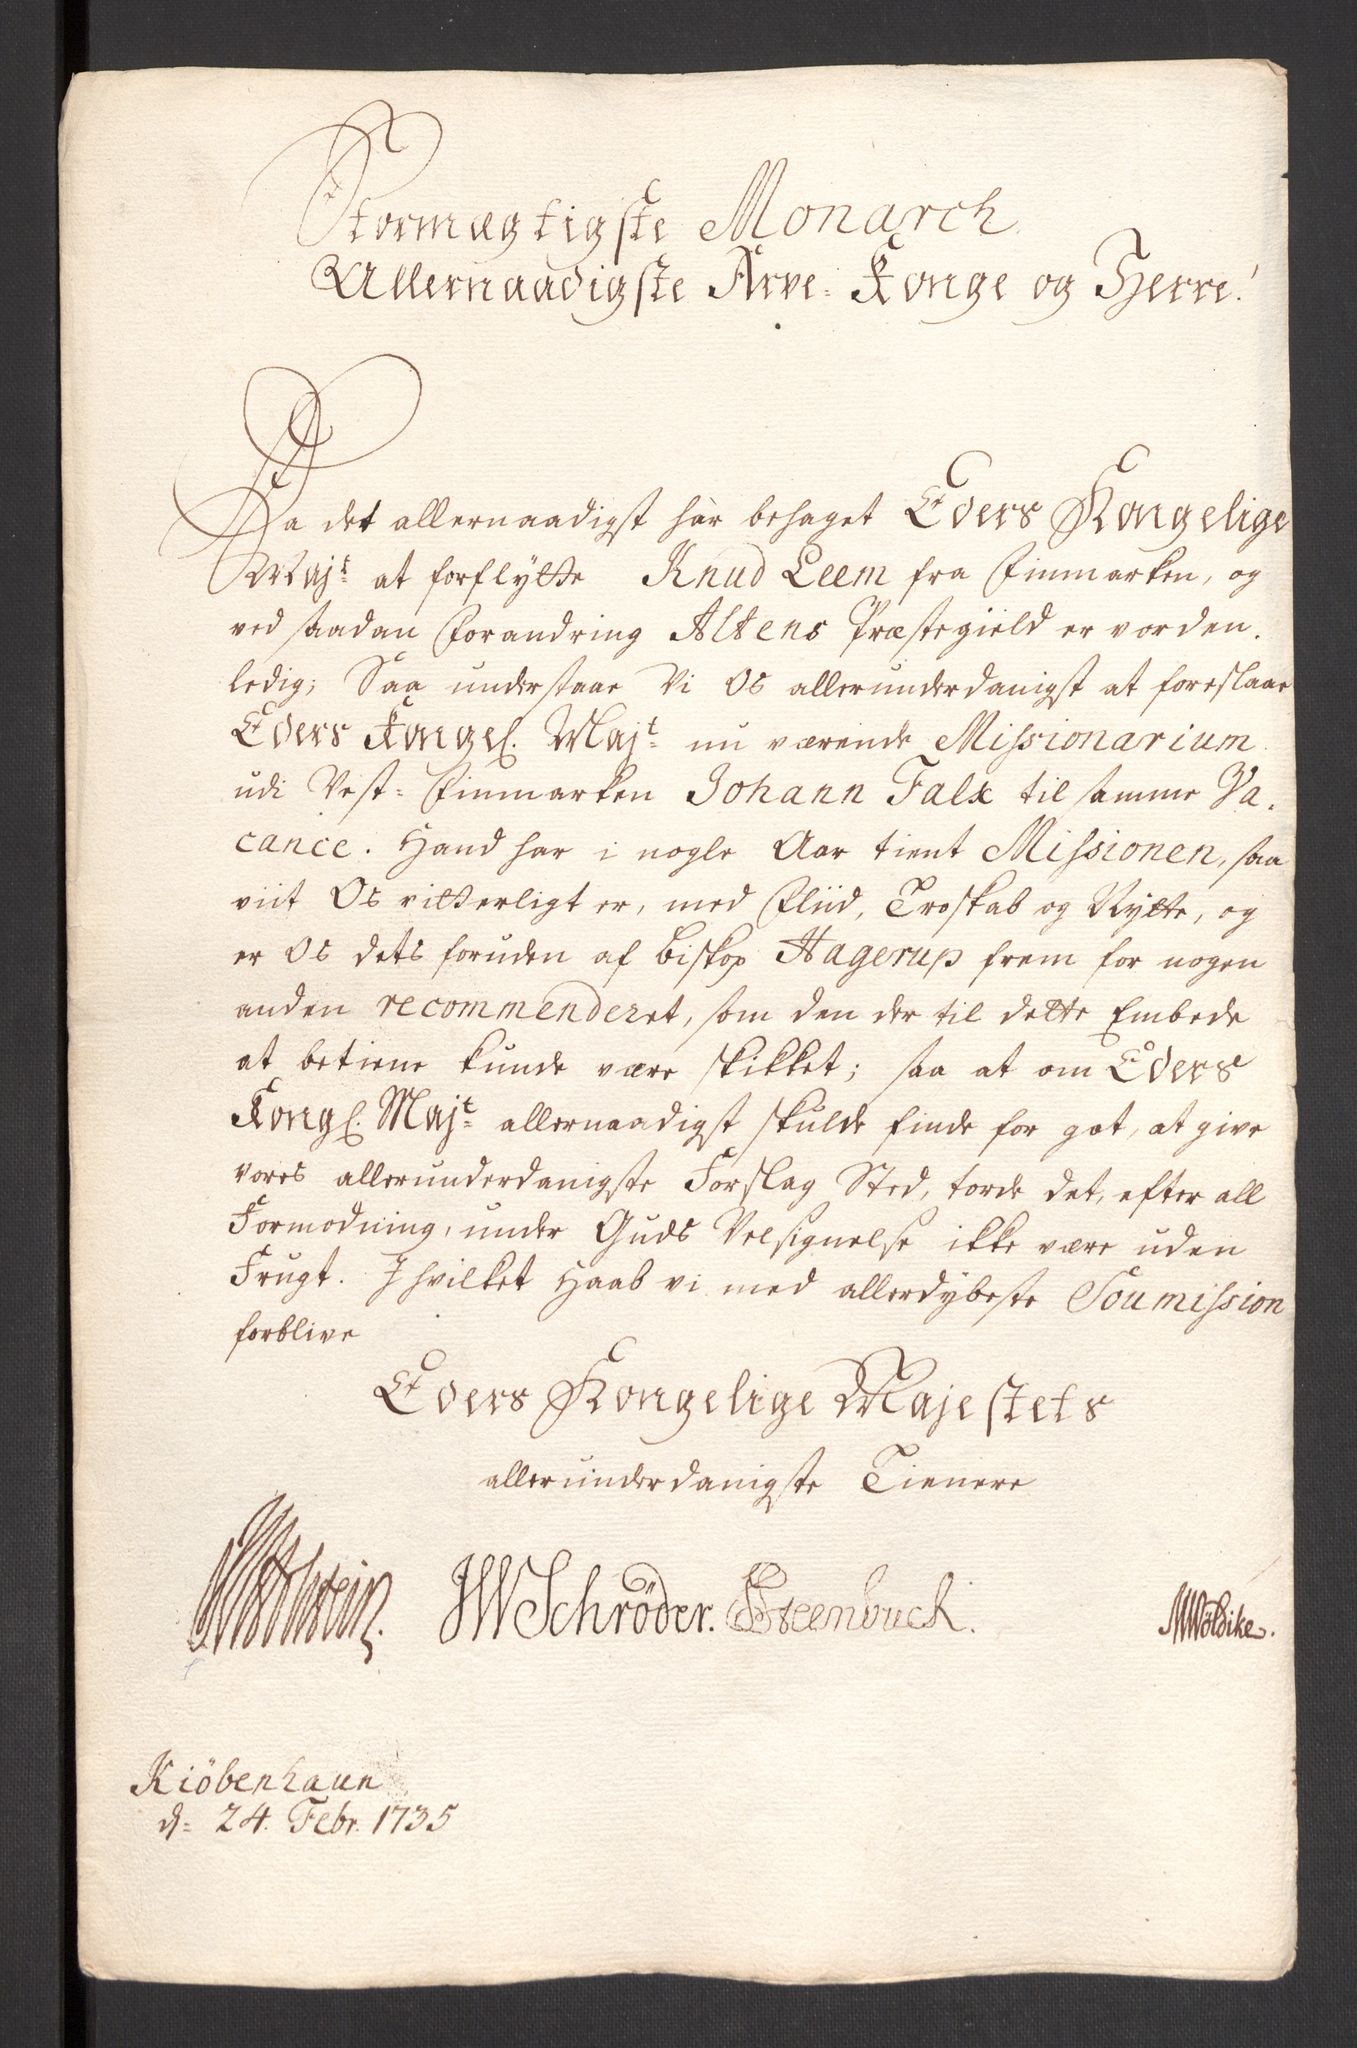 Stormægtigste Monarch
Allernaadigste Arve-Konge og Herre!
Da det allernaadigst har behaget Eders Kongelige
Majt at forflytte Knud Leem fra Finmarken, og
ved saadan Forandring Altens Præstegield er vorden
ledig; Saa understaae Vi Os allerunderdanigst at foreslaae
Eders Kongel. Majt nu værende Missionarium
udi Vest-Finmarken Johann Falx til samme Va-
cance. Hand har i nogle Aar tient Missionen, saa
viit Os vitterligt er, med Fliid, Troskab og Nytte, og
er Os dets foruden af Biskop Hagerup frem for nogen
anden recommenderet, som den der til dette Embede
at betiene kunde være skikket; saa at om Eders
Kongl. Majt allernaadigst skulde finde for got, at give
vores allerunderdanigste Forslag Sted, torde det, efter all
Formodning, under Guds Velsignelse ikke være uden
Frugt. I hvilket Haab vi med allerdybeste Soumission
forblive
Eders Kongelige Majestets
allerunderdanigste Tienere
JWSchröder. Steenbuch. MWöldike.
Kiöbenhaun
d: 24. Febr. 1735